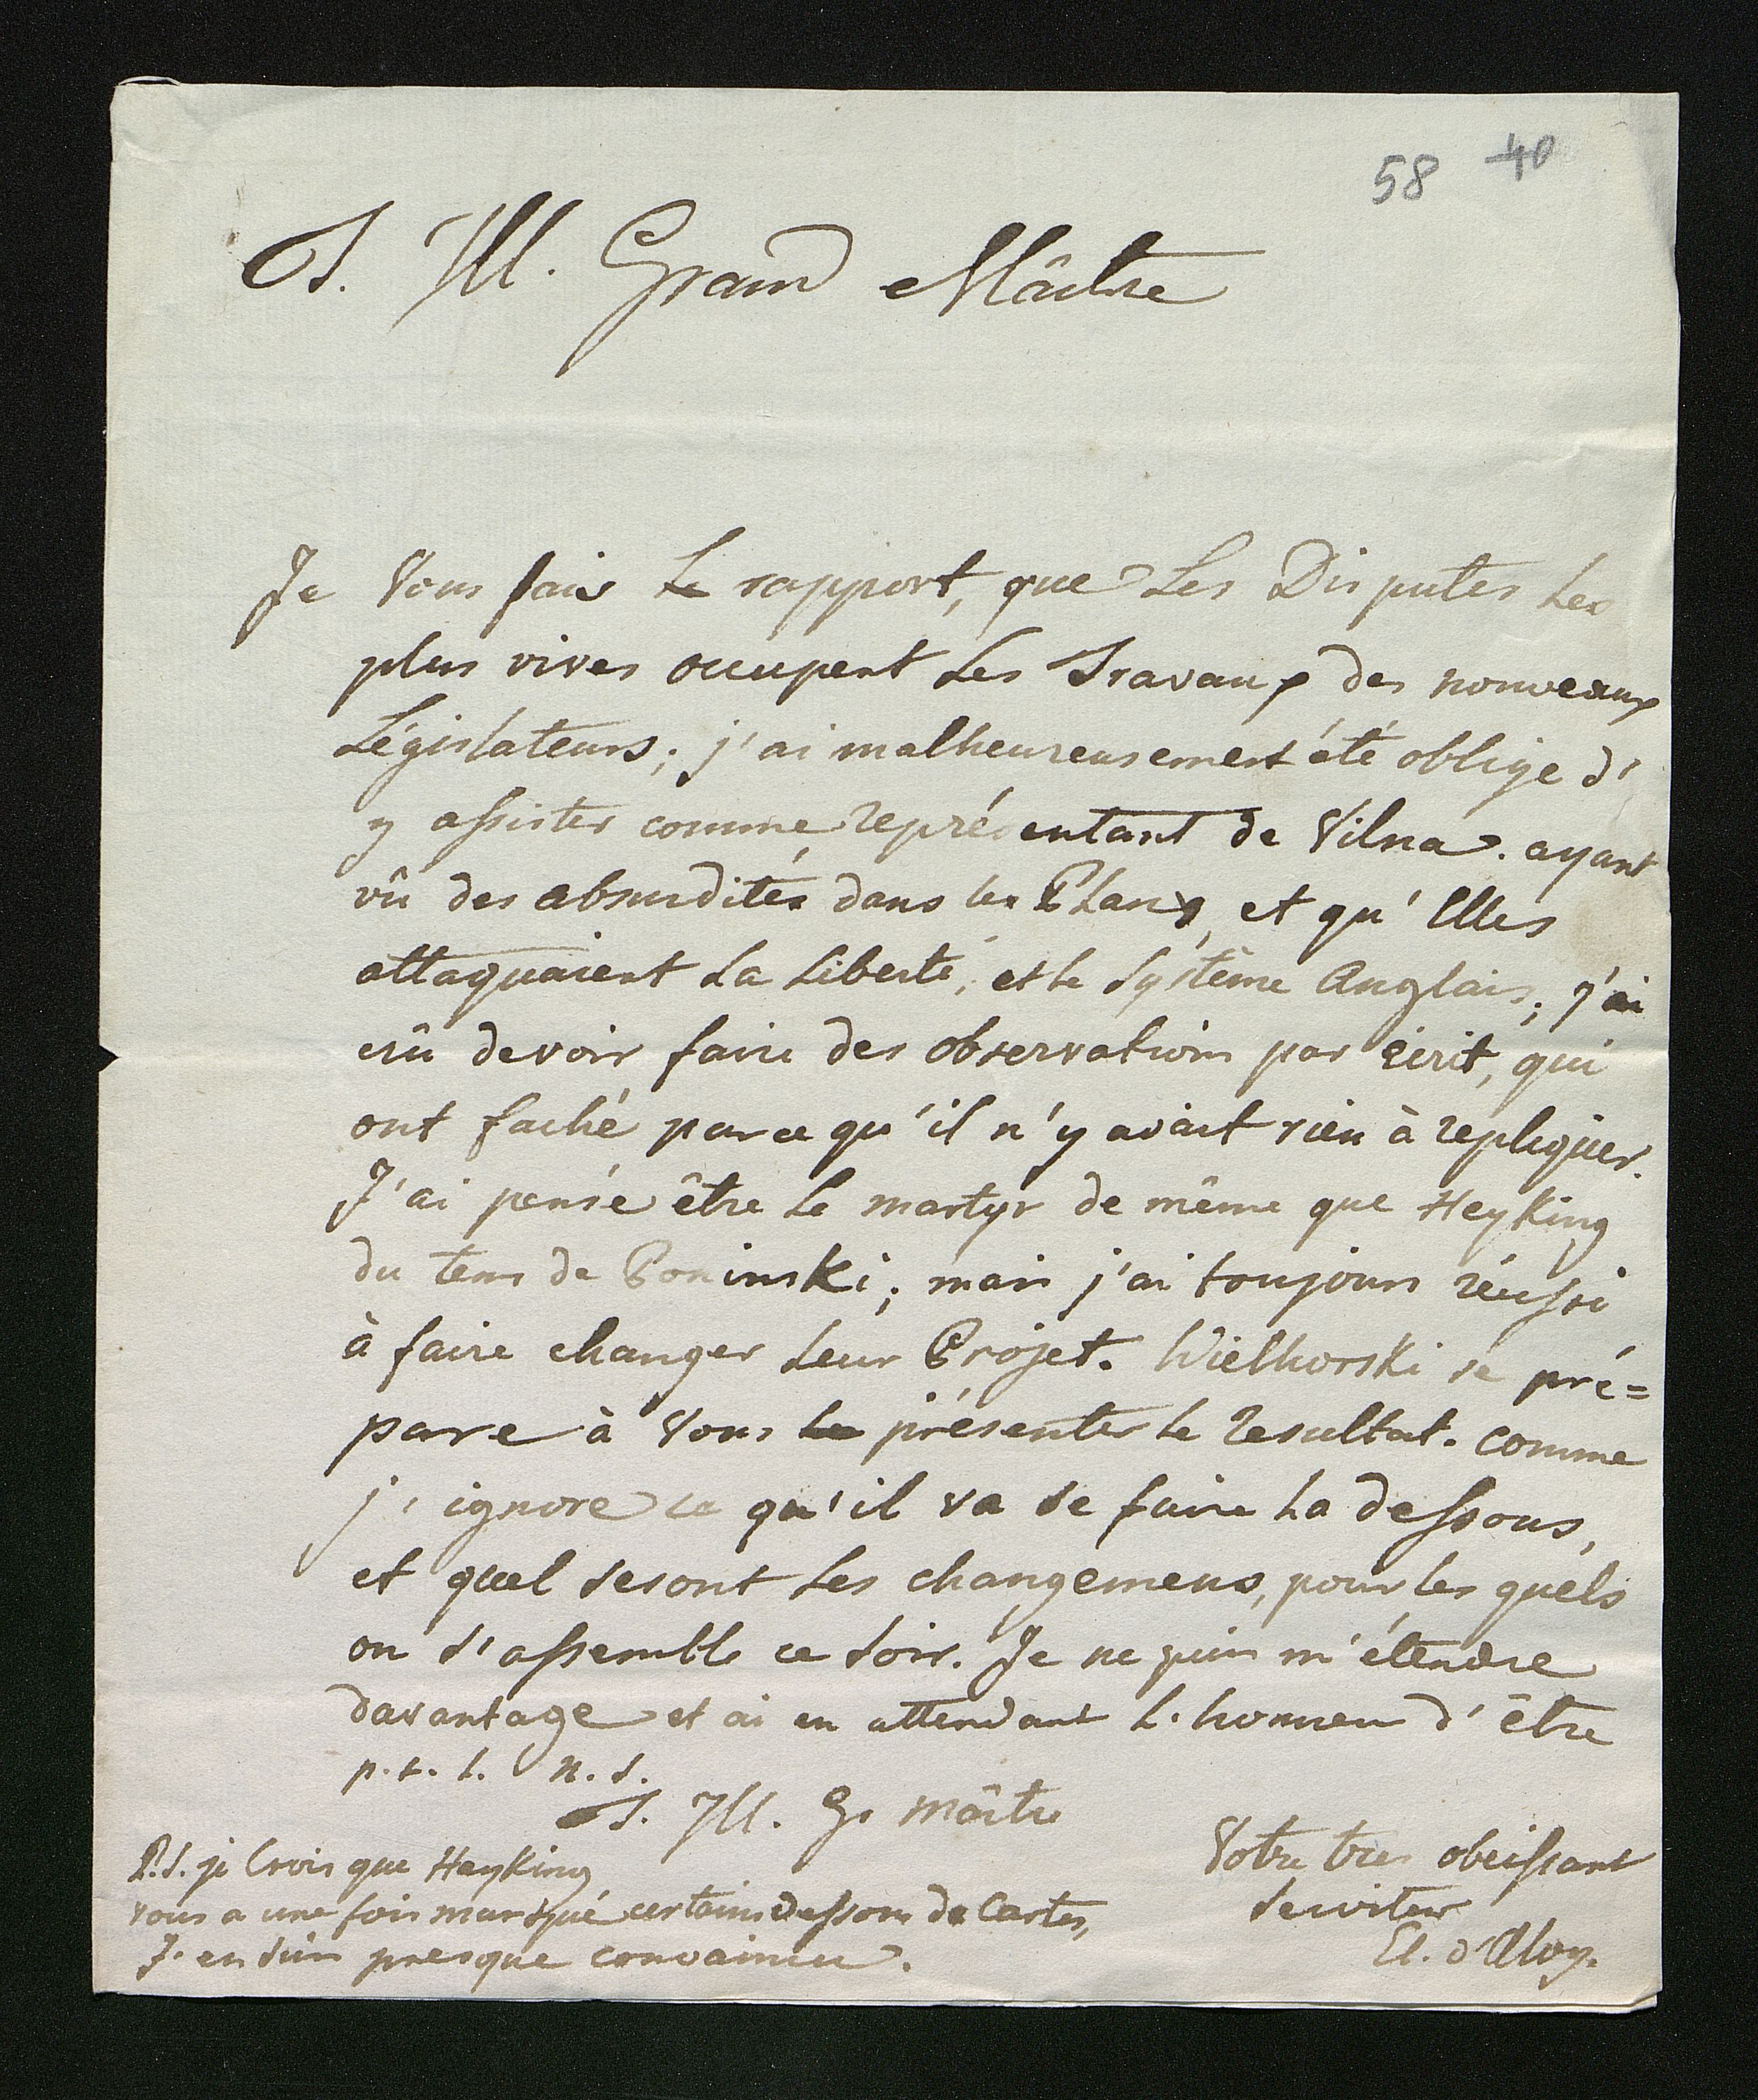 58 40
T. Ill. Grand Mâitre
Je Vous fais Le rapport, que Les Disputes Les
plus vives occupent Les Travaux des nouveaux
Législateurs; j'ai malheureusement été oblige d'
y assister comme représentant de Vilna. ayant
vû des absurdités dans les Plans, et qu'Elles
attaquaient La Liberté, et le Systême Anglais; j'ai
crû devoir faire des observations par écrit, qui
ont faché parce qu'il n'y avait rien à repliquer.
J'ai pensé être Le martyr de même que HeyKing
du tems de PoninsKi; mais j'ai toujours réussi
à faire changer Leur Projet. WielhorsKi se pré=
pare à Vous présenter le resultat. comme
j'ignore ce qu'il va se faire La dessous,
et quel seront Les changemens, pour les quels
on s'assemble ce soir. Je ne puis m'étendre
davantage et ai en attendant L'honneur d'être
p. t. l. n. s.
T. Ill. G. Mâitre
Votre tres obeissant
serviteur
El. d'Aloy.
P.S. je Crois que HeyKing
vous a une fois marqué certains dessous de Cartes,
J'en suis presque convaincu.